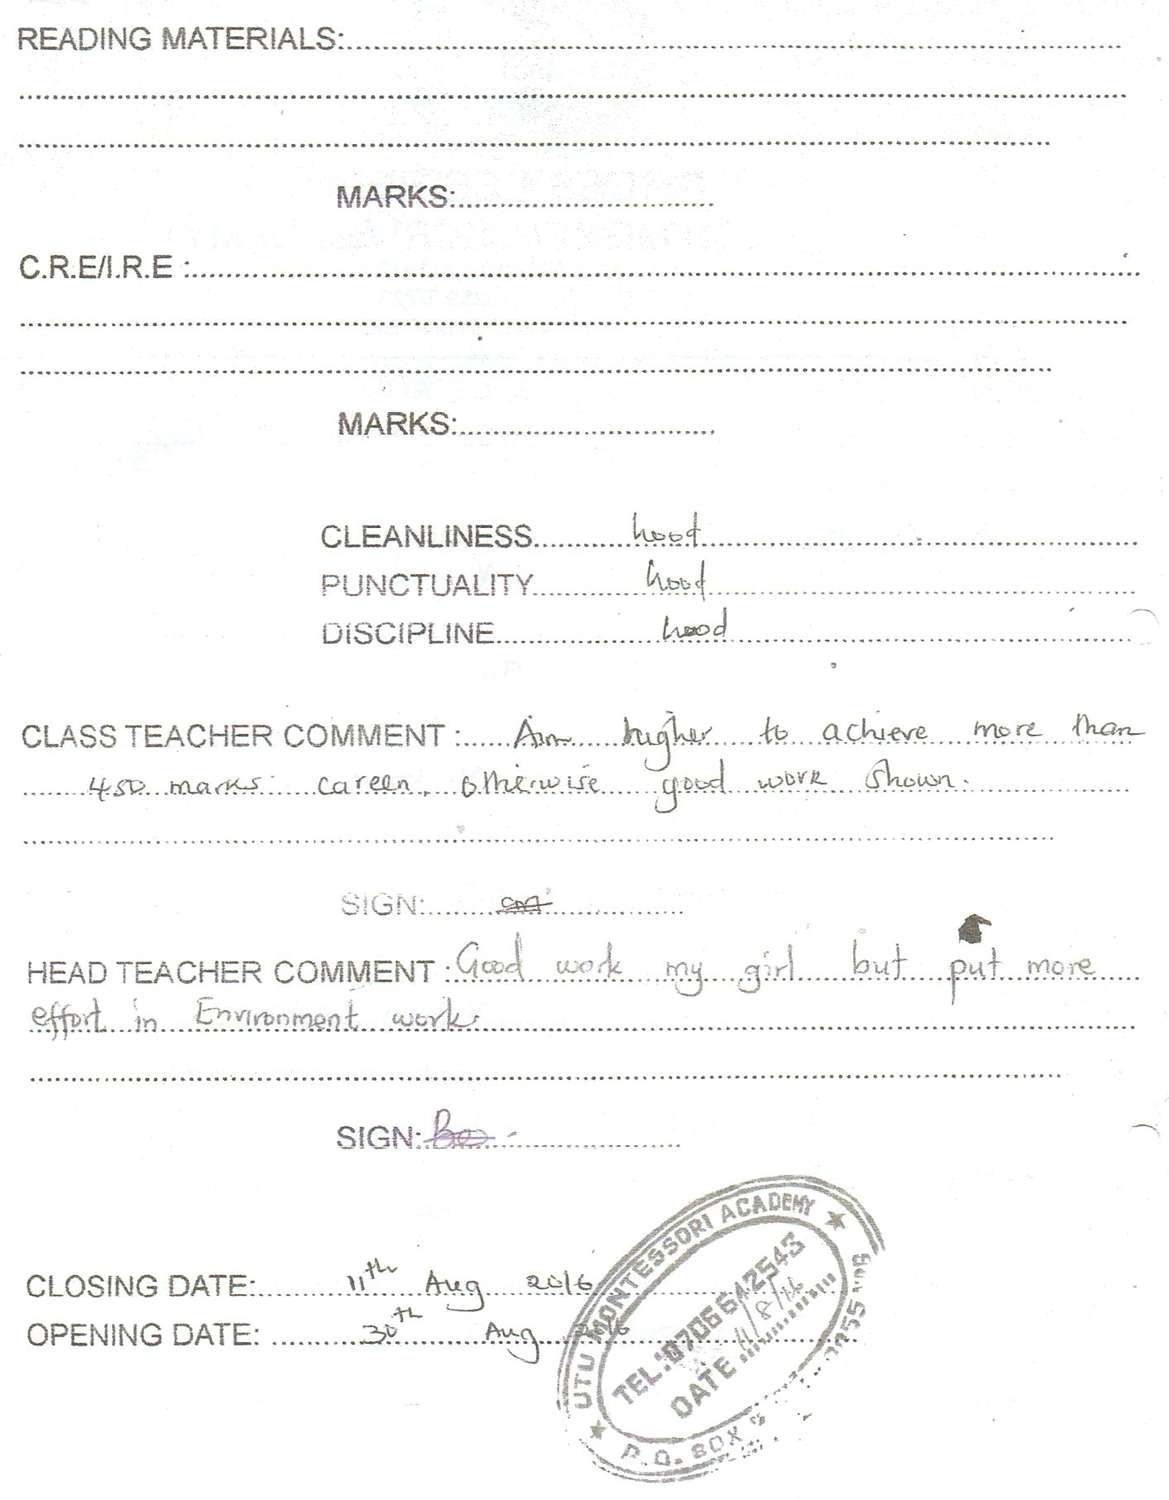 READING MATERIALS:
MARKS:
C.R.E/I.R.E :
MARKS:
CLEANLINESS Good
PUNCTUALITY Good
DISCIPLINE Good
CLASS TEACHER COMMENT : Aim higher to achieve more than
450 marks careen, otherwise good work shown.
SIGN:
HEAD TEACHER COMMENT : Good work my girl but put more
effort in Environment work.
SIGN:
CLOSING DATE: 11th Aug 2016
OPENING DATE: 30th Aug 2016
UTU MONTESSORI ACADEMY
TEL: 0706642543
DATE 11/8/16
P.O. BOX